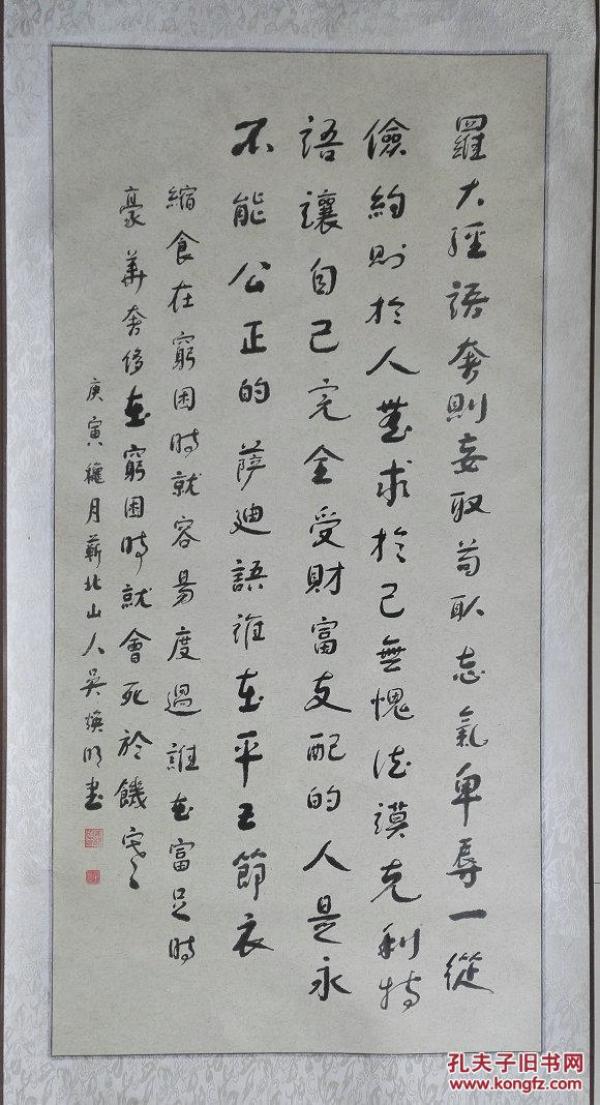 羅大經語奢則妄取苟取志氣卑辱一從
儉約則於人無求於己無愧德謨克利特
語讓自己完全受財富支配的人是永
不能公正的薩迪語誰在平日節衣
縮食在窮困時就容易度過誰在富足時
豪華奢侈在窮困時就會死於饑寒
庚寅穐月蘄北山人吳煥明書
孔夫子旧书网
www.kongfz.com